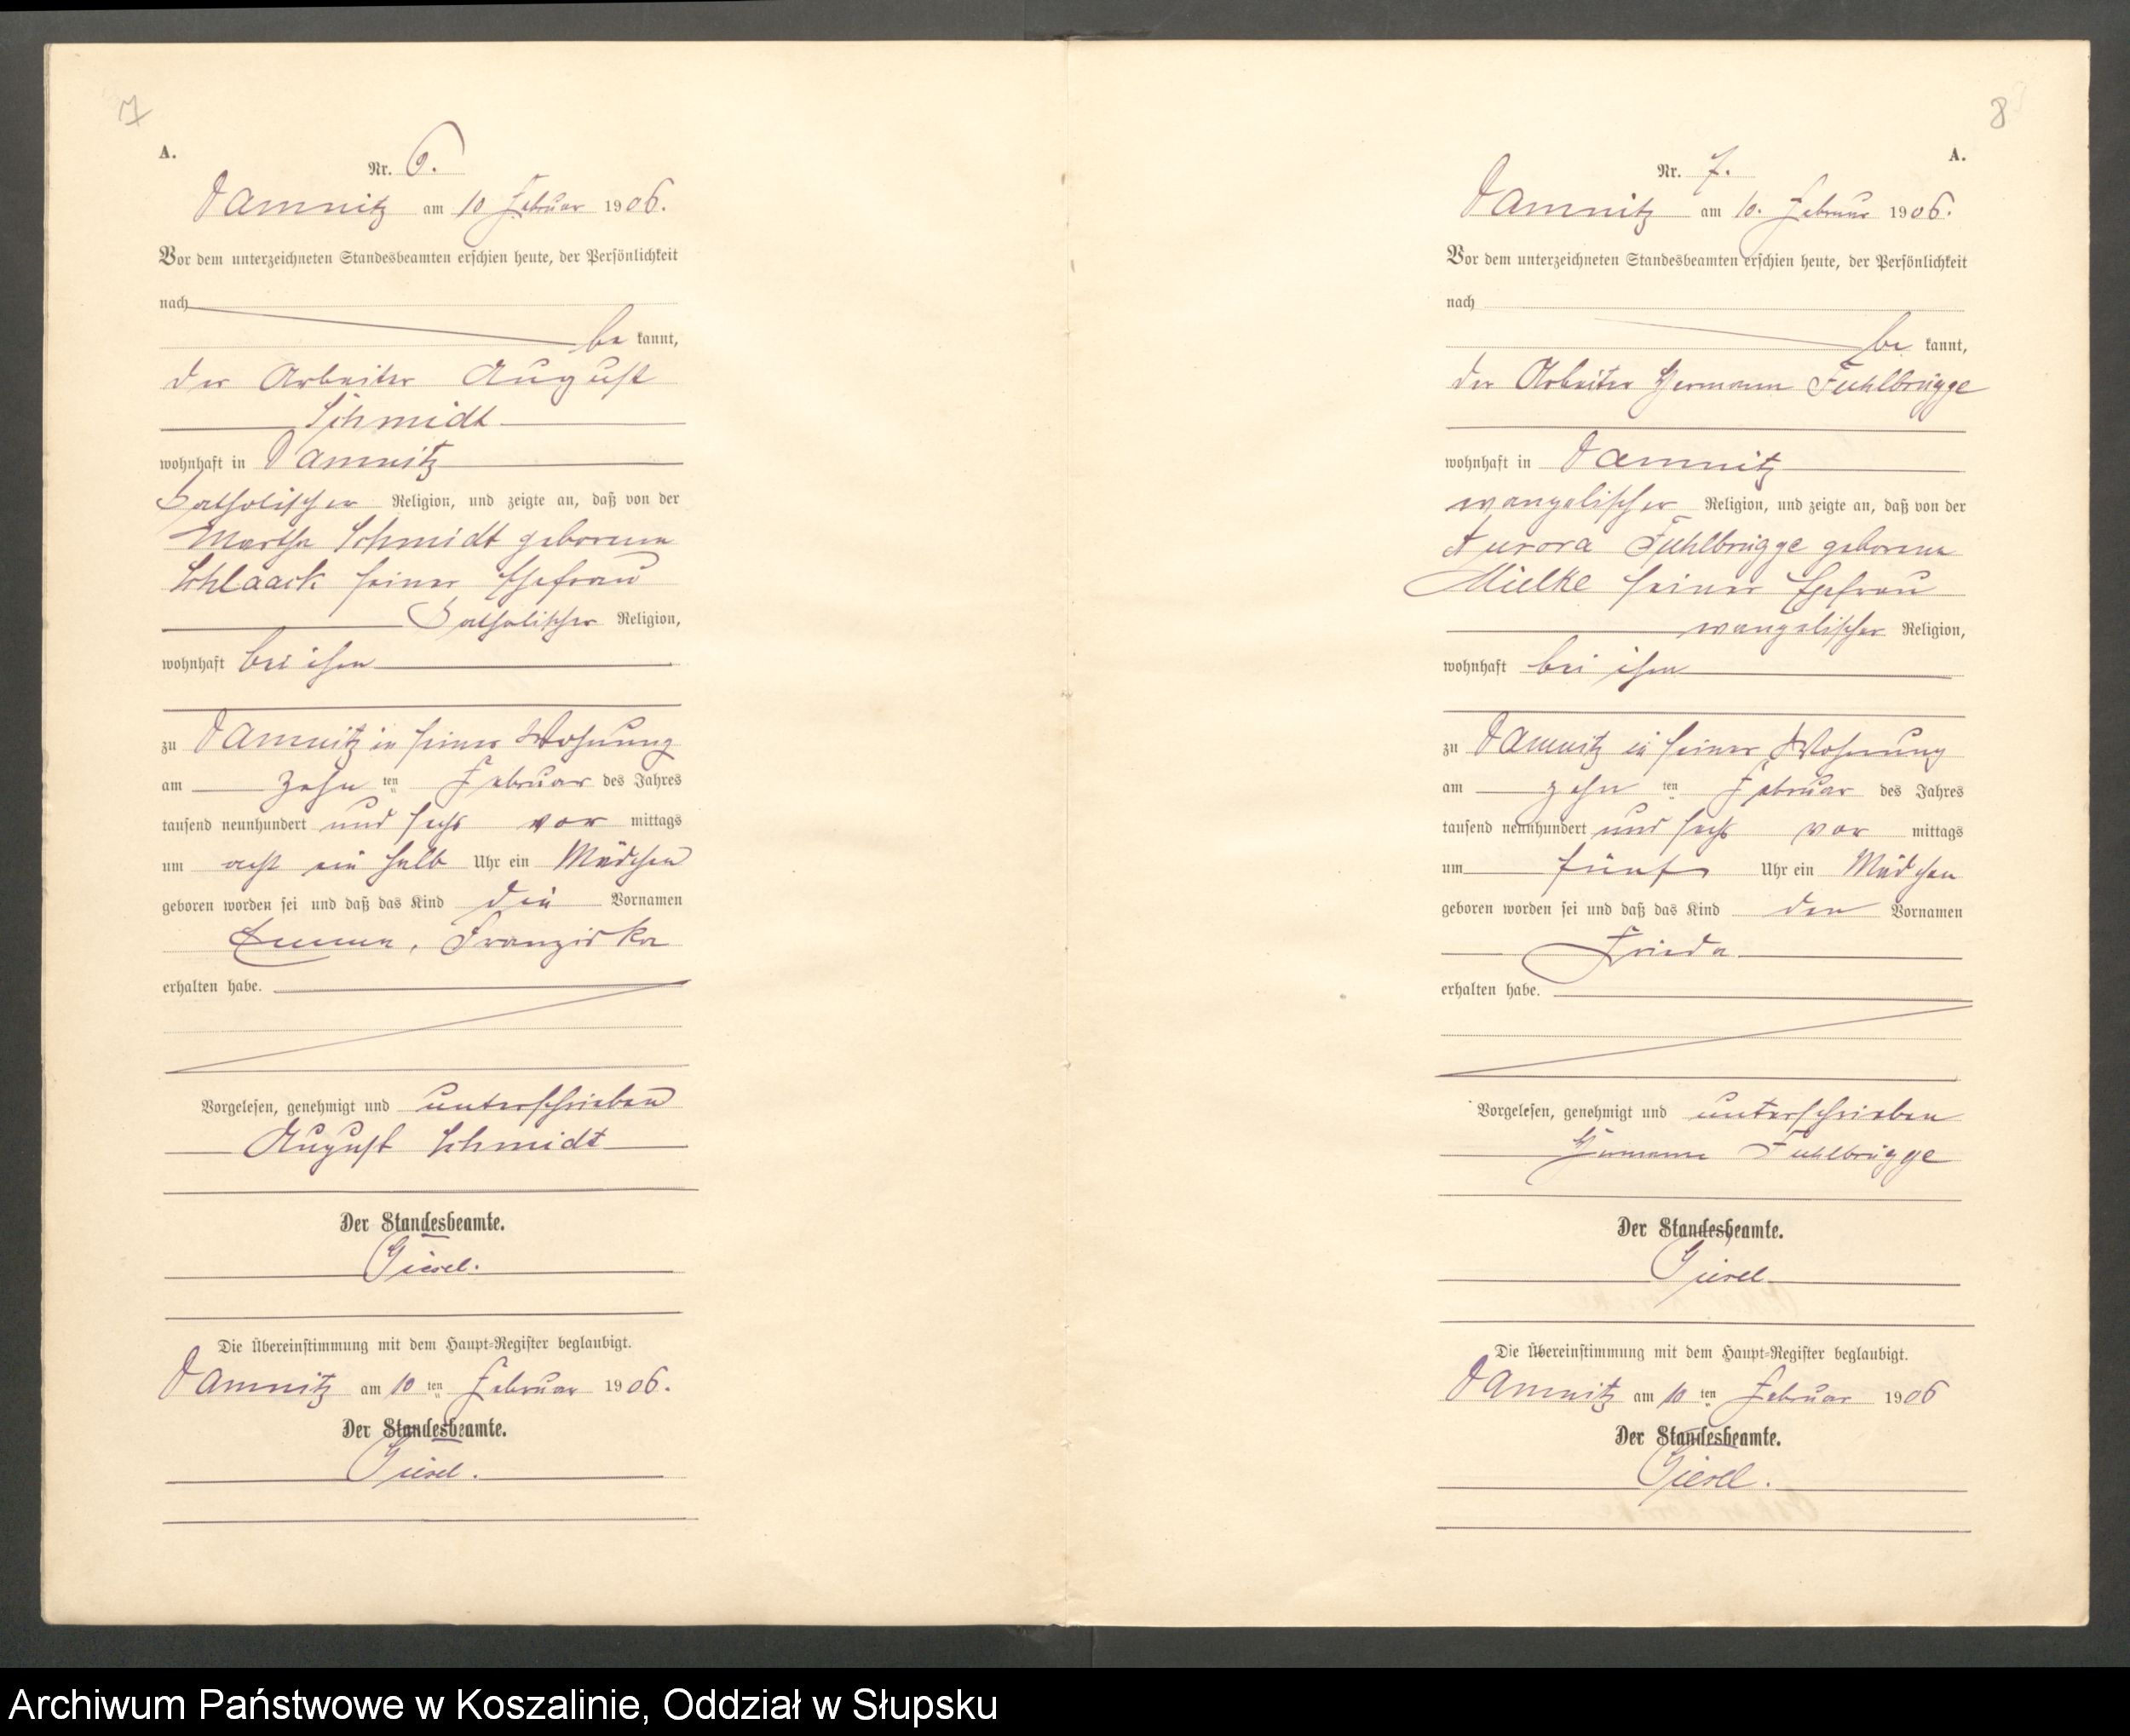 7
A.
Nr. 6.
Damnitz am 10 Februar 1906.
Vor dem unterzeichneten Standesbeamten erschien heute, der Persönlichkeit
nach
be kannt,
der Arbeiter August
Schmidt
wohnhaft in Damnitz
katholischer Religion, und zeigte an, daß von der
Martha Schmidt geborene
Schlaack seiner Ehefrau
katholischer Religion,
wohnhaft bei ihm
zu Damnitz in seiner Wohnung
am zehn ten Februar des Jahres
tausend neunhundert und sechs vor mittags
um acht ein halb Uhr ein Mädchen
geboren worden sei und daß das Kind die Vornamen
Emma, Franziska
erhalten habe.
Vorgelesen, genehmigt und unterschrieben
August Schmidt
Der Standesbeamte.
Giesel.
Die Übereinstimmung mit dem Haupt-Register beglaubigt.
Damnitz am 10 ten Februar 1906.
Der Standesbeamte.
Giesel.
8
A.
Nr. 7.
Damnitz am 10. Februar 1906.
Vor dem unterzeichneten Standesbeamten erschien heute, der Persönlichkeit
nach
be kannt,
der Arbeiter Hermann Fuhlbrügge
wohnhaft in Damnitz
evangelischer Religion, und zeigte an, daß von der
Aurora Fuhlbrügge geborene
Mielke seiner Ehefrau
evangelischer Religion,
wohnhaft bei ihm
zu Damnitz in seiner Wohnung
am zehn ten Februar des Jahres
tausend neunhundert und sechs vor mittags
um fünf Uhr ein Mädchen
geboren worden sei und daß das Kind den Vornamen
Frieda
erhalten habe.
Vorgelesen, genehmigt und unterschrieben
Hermann Fuhlbrügge
Der Standesbeamte.
Giesel
Die Übereinstimmung mit dem Haupt-Register beglaubigt.
Damnitz am 10 ten Februar 1906
Der Standesbeamte.
Giesel.
Archiwum Państwowe w Koszalinie, Oddział w Słupsku